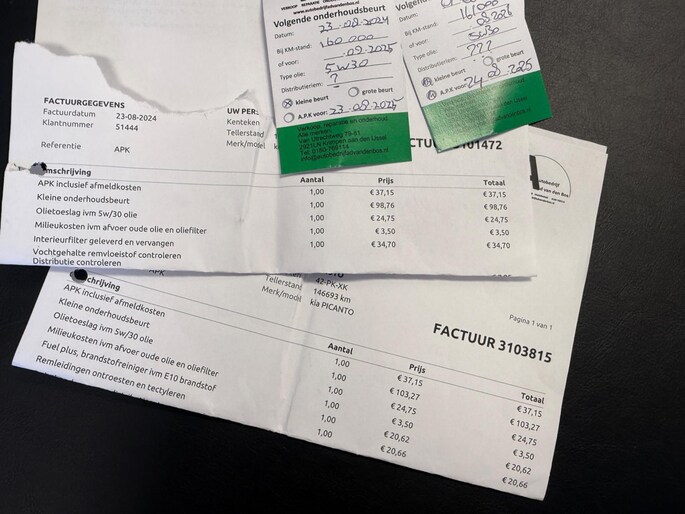 VERKOOP REPARATIE ONDERHOUD
www.autobedrijfvandenbos.nl
Volgende onderhoudsbeurt
Datum: 23-08-2024
Bij KM-stand: 160.000
of voor: .09.2025
Type olie: 5W30
Distributieriem: ?
kleine beurt
grote beurt
A.P.K voor: 23-08-2025
verkoop, reparatie en onderhoud
Alle merken.
Van Utrechtweg 79-81
2921LN Krimpen aan den IJssel
Tel: 0180-
info@autobedrijfvandenbos.nl
Volgende onderhoudsbeurt
Datum:
Bij KM-stand: 161000
of voor: .08.2026
Type olie: 5W30
Distributieriem: ???
kleine beurt
grote beurt
A.P.K voor: 24.08.2025
FACTUURGEGEVENS
Factuurdatum 23-08-2024
Klantnummer 51444
Referentie APK
UW PER
Kenteken
Tellerstand
Merk/model
CTUUR 3101472
mschrijving Aantal Prijs Totaal
APK inclusief afmeldkosten 1,00 € 37,15 € 37,15
Kleine onderhoudsbeurt 1,00 € 98,76 € 98,76
Olietoeslag ivm 5w/30 olie 1,00 € 24,75 € 24,75
Milieukosten ivm afvoer oude olie en oliefilter 1,00 € 3,50 € 3,50
Interieurfilter geleverd en vervangen 1,00 € 34,70 € 34,70
Vochtgehalte remvloeistof controleren
Distributie controleren
42-PK-XK
Tellerstand 146693 km
Merk/model kia PICANTO
APK
Pagina 1 van 1
FACTUUR 3103815
chrijving Aantal Prijs Totaal
APK inclusief afmeldkosten 1,00 € 37,15 € 37,15
Kleine onderhoudsbeurt 1,00 € 103,27 € 103,27
Olietoeslag ivm 5w/30 olie 1,00 € 24,75 € 24,75
Milieukosten ivm afvoer oude olie en oliefilter 1,00 € 3,50 € 3,50
Fuel plus, brandstofreiniger ivm E10 brandstof 1,00 € 20,62 € 20,62
Remleidingen ontroesten en tectyleren 1,00 € 20,66 € 20,66